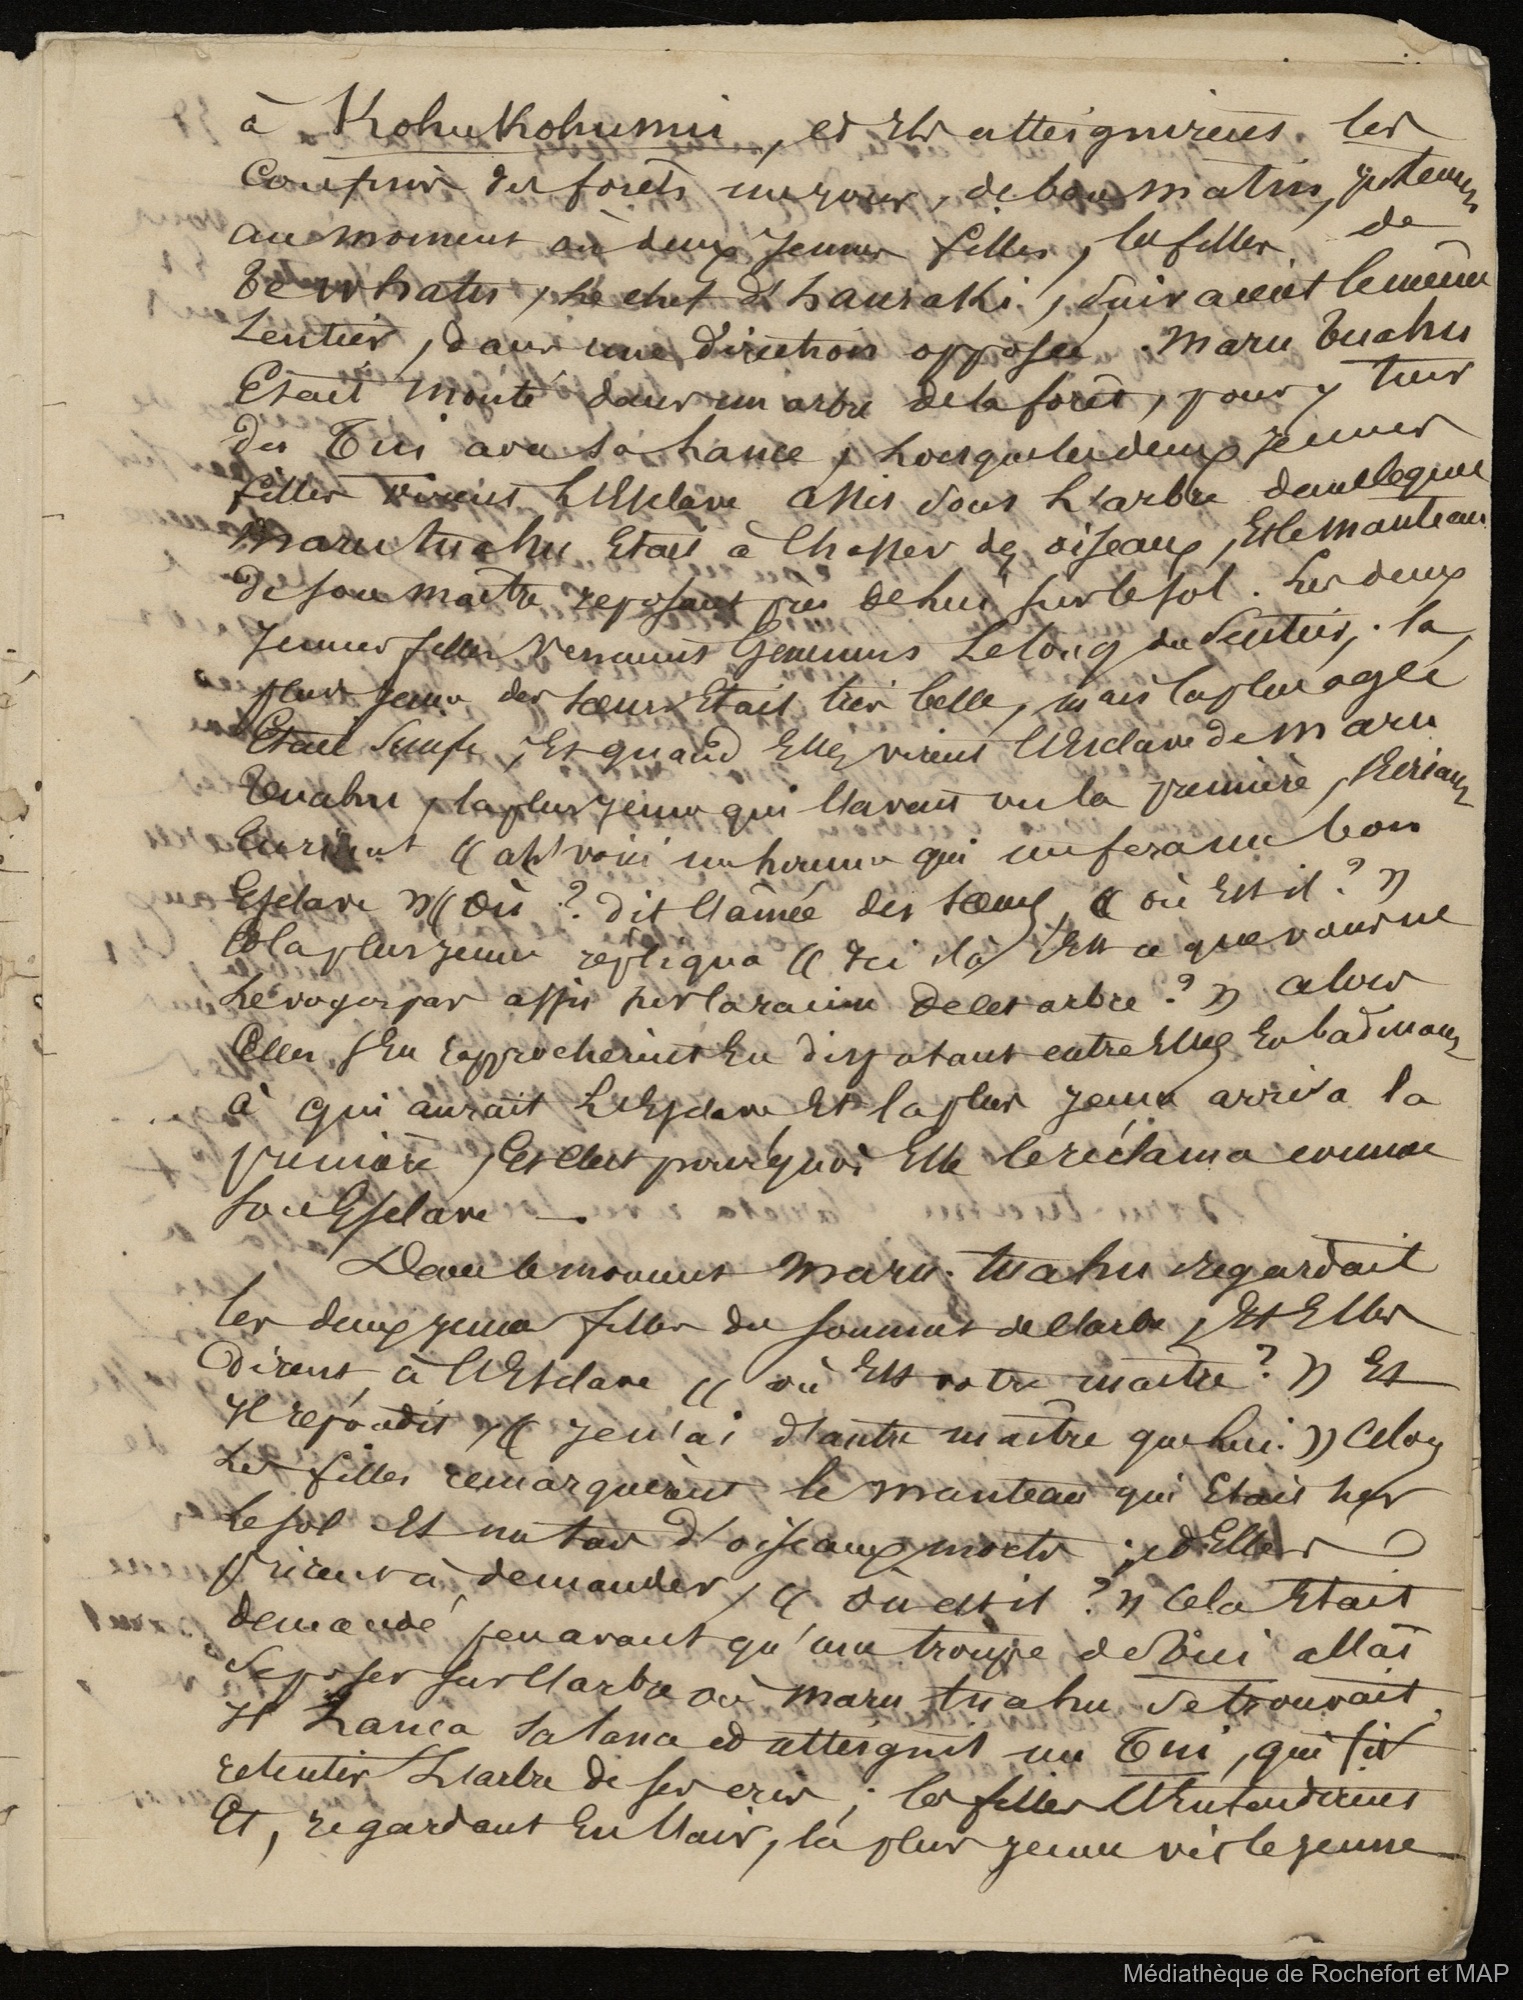 à Kohukohunui, et ils atteignirent les
confins des forêts un jour, de bon matin, justement
au moment où deux jeunes filles, les filles de
Te Whata, le chef d'hauraki, suivaient le même
sentier, dans une direction opposée. Maru Tuahu
Etait monté dans un arbre de la forêt, pour y tuer
des Tui avec sa lance, lorsque les deux jeunes
filles virent l'Esclave assis sous l'arbre dans lequel
Maru tuahu Etait à chasser des oiseaux, Et le manteau
de son maître reposant près de lui sur le sol. Les deux
jeunes filles venaient gaiement le long du sentier, la
plus jeune des soeurs Etait très belle, mais la plus agée
Etait simple, Et quand Elles virent l'Esclave de Maru
Tuahu, la plus jeune qui l'avait vu la première, s'écria
En riant « ah! voici un homme qui me fera un bon
Esclave » « Où ? dit l'aînée des soeurs, « où Est il ? »
Et la plus jeune répliqua « Ici là, Est ce que vous ne
le voyez pas assis sur la racine de cet arbre ? » alors
Elles s'En rapprochèrent En disputant entre Elles En badinant
à qui aurait l'Esclave Et la plus jeune arriva la
première, Et c'est pourquoi Elle le réclama comme
son Esclave —
Dans le moment Maru-tuahu regardait
les deux jeunes filles du sommet de l'arbre, Et Elles
dirent à l'Esclave « où Est votre maître ? » Et
Il répondit « je n'ai d'autre maître que lui. » alors
Les filles remarquèrent le manteau qui Etait sur
le sol Et un tas d'oiseaux morts ; et Elles
prirent à demander, « Où est il ? » Cela Etait
demandé peu avant qu'une troupe de Tui allât
se poser sur l'arbre où Maru tuahu se trouvait.
Il lança sa lance et atteignit un Tui, qui fit
retentir l'arbre de ses cris ; les filles l'Entendirent
Et, regardant En l'air, la plus jeune vit le jeune
Médiathèque de Rochefort et MAP